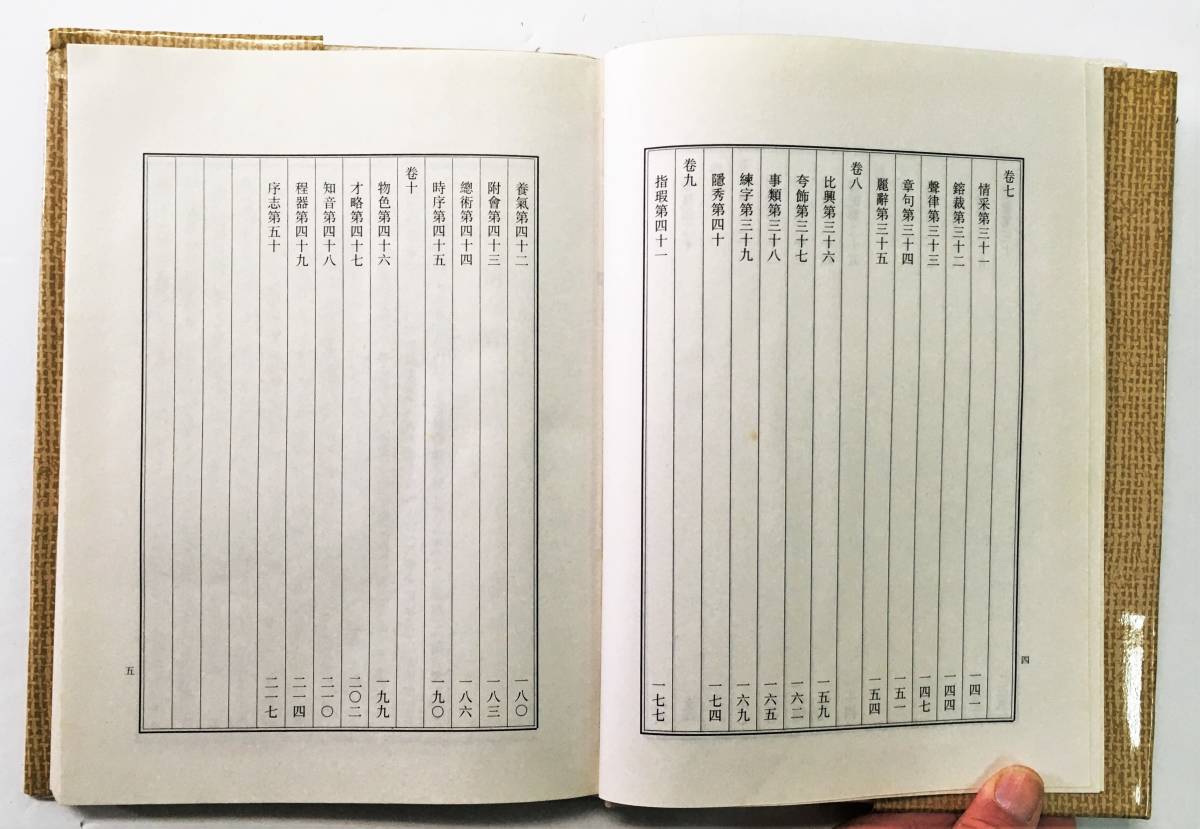 卷七
情采第三十一 一四一
鎔裁第三十二 一四四
聲律第三十三 一四七
章句第三十四 一五一
麗辭第三十五 一五四
卷八
比興第三十六 一五九
夸飾第三十七 一六二
事類第三十八 一六五
練字第三十九 一六九
隱秀第四十 一七四
卷九
指瑕第四十一 一七七
四
養氣第四十二 一八〇
附會第四十三 一八三
總術第四十四 一八六
時序第四十五 一九〇
卷十
物色第四十六 一九九
才略第四十七 二〇二
知音第四十八 二一〇
程器第四十九 二一四
序志第五十 二一七
五